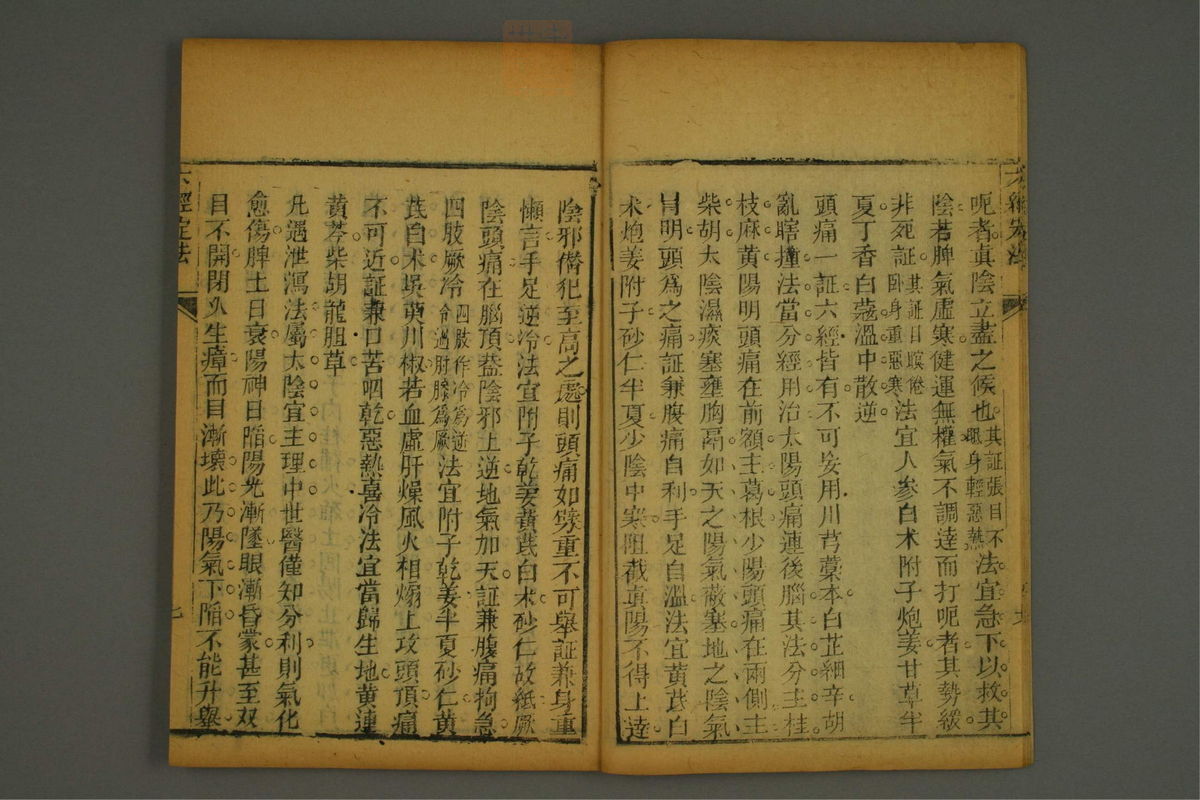 六經定法
呃者真陰立盡之候也其証張目不眠身輕惡熱法宜急下以救其
陰若脾氣虛寒健運無權氣不調達而打呃者其勢緩
非死証其証目瞑倦卧身重惡寒法宜人參白术附子炮姜甘草半
夏丁香白蔻溫中散逆
頭痛一証六經皆有不可妄用川芎藁本白芷細辛胡
亂瞎撞法當分經用治太陽頭痛連後腦其法分主桂
枝麻黄陽明頭痛在前額主葛根少陽頭痛在兩側主
柴胡太陰濕痰塞壅胸鬲如天之陽氣蔽塞地之陰氣
冐明頭爲之痛証兼腹痛自利手足自溫法宜黄茋白
术炮姜附子砂仁半夏少陰中寒阻截真陽不得上達
陰邪僭犯至高之處則頭痛如劈重不可舉証兼身重
懶言手足逆冷法宜附子乾姜黄茋白术砂仁故紙厥
陰頭痛在腦頂葢陰邪上逆地氣加天証兼腹痛拘急
四肢厥冷四肢作冷爲逆冷過肘膝爲厥法宜附子乾姜半夏砂仁黄
茋白术吳萸川椒若血虛肝燥風火相煽上攻頭頂痛
不可近証兼口苦咽乾惡熱喜冷法宜當歸生地黄連
黄芩柴胡龍胆草
凢遇泄瀉法屬太陰宜主理中世醫僅知分利則氣化
愈傷脾土日衰陽神日陷陽光漸墜眼漸昏蒙甚至双
目不開閉久生瘴而目漸壞此乃陽氣下陷不能升舉
六經定法
七